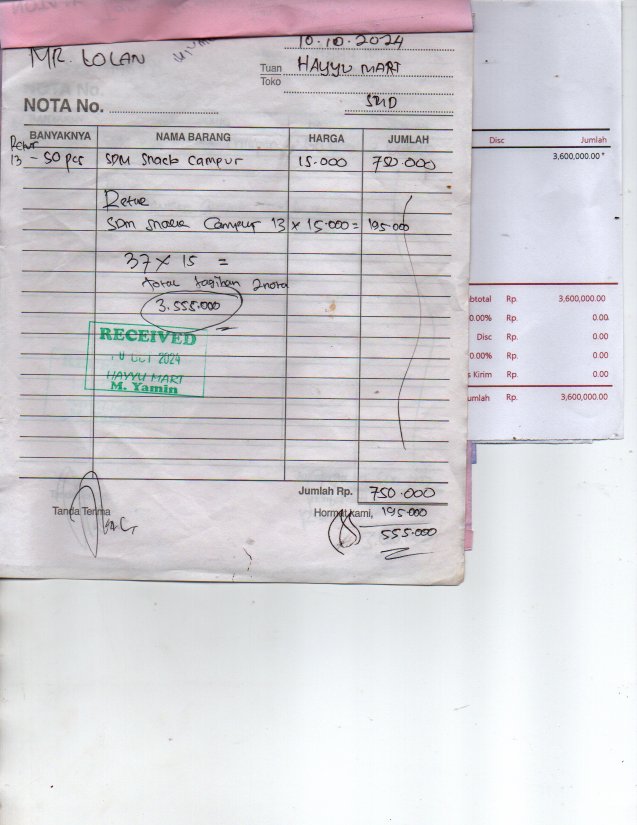 10.10.2024
MR. LOLAN
Tuan HAYYU MART
Toko
NOTA No.
SMD
BANYAKNYA NAMA BARANG HARGA JUMLAH
Retur
13 - 50 pcs SDM Snack Campur 15.000 750.000
Retur
SDM Snack Campur 13 x 15.000 = 195.000
37 x 15 =
total tagihan 2 nota
3.555.000
RECEIVED
10 OCT 2024
HAYYU MART
M. Yamin
Jumlah Rp. 750.000
Tanda Terima
Hormat kami, 195.000
555.000
Disc Jumlah
3,600,000.00
btotal Rp. 3,600,000.00
0.00% Rp. 0.00
Disc Rp. 0.00
0.00% Rp. 0.00
s Kirim Rp. 0.00
umlah Rp. 3,600,000.00